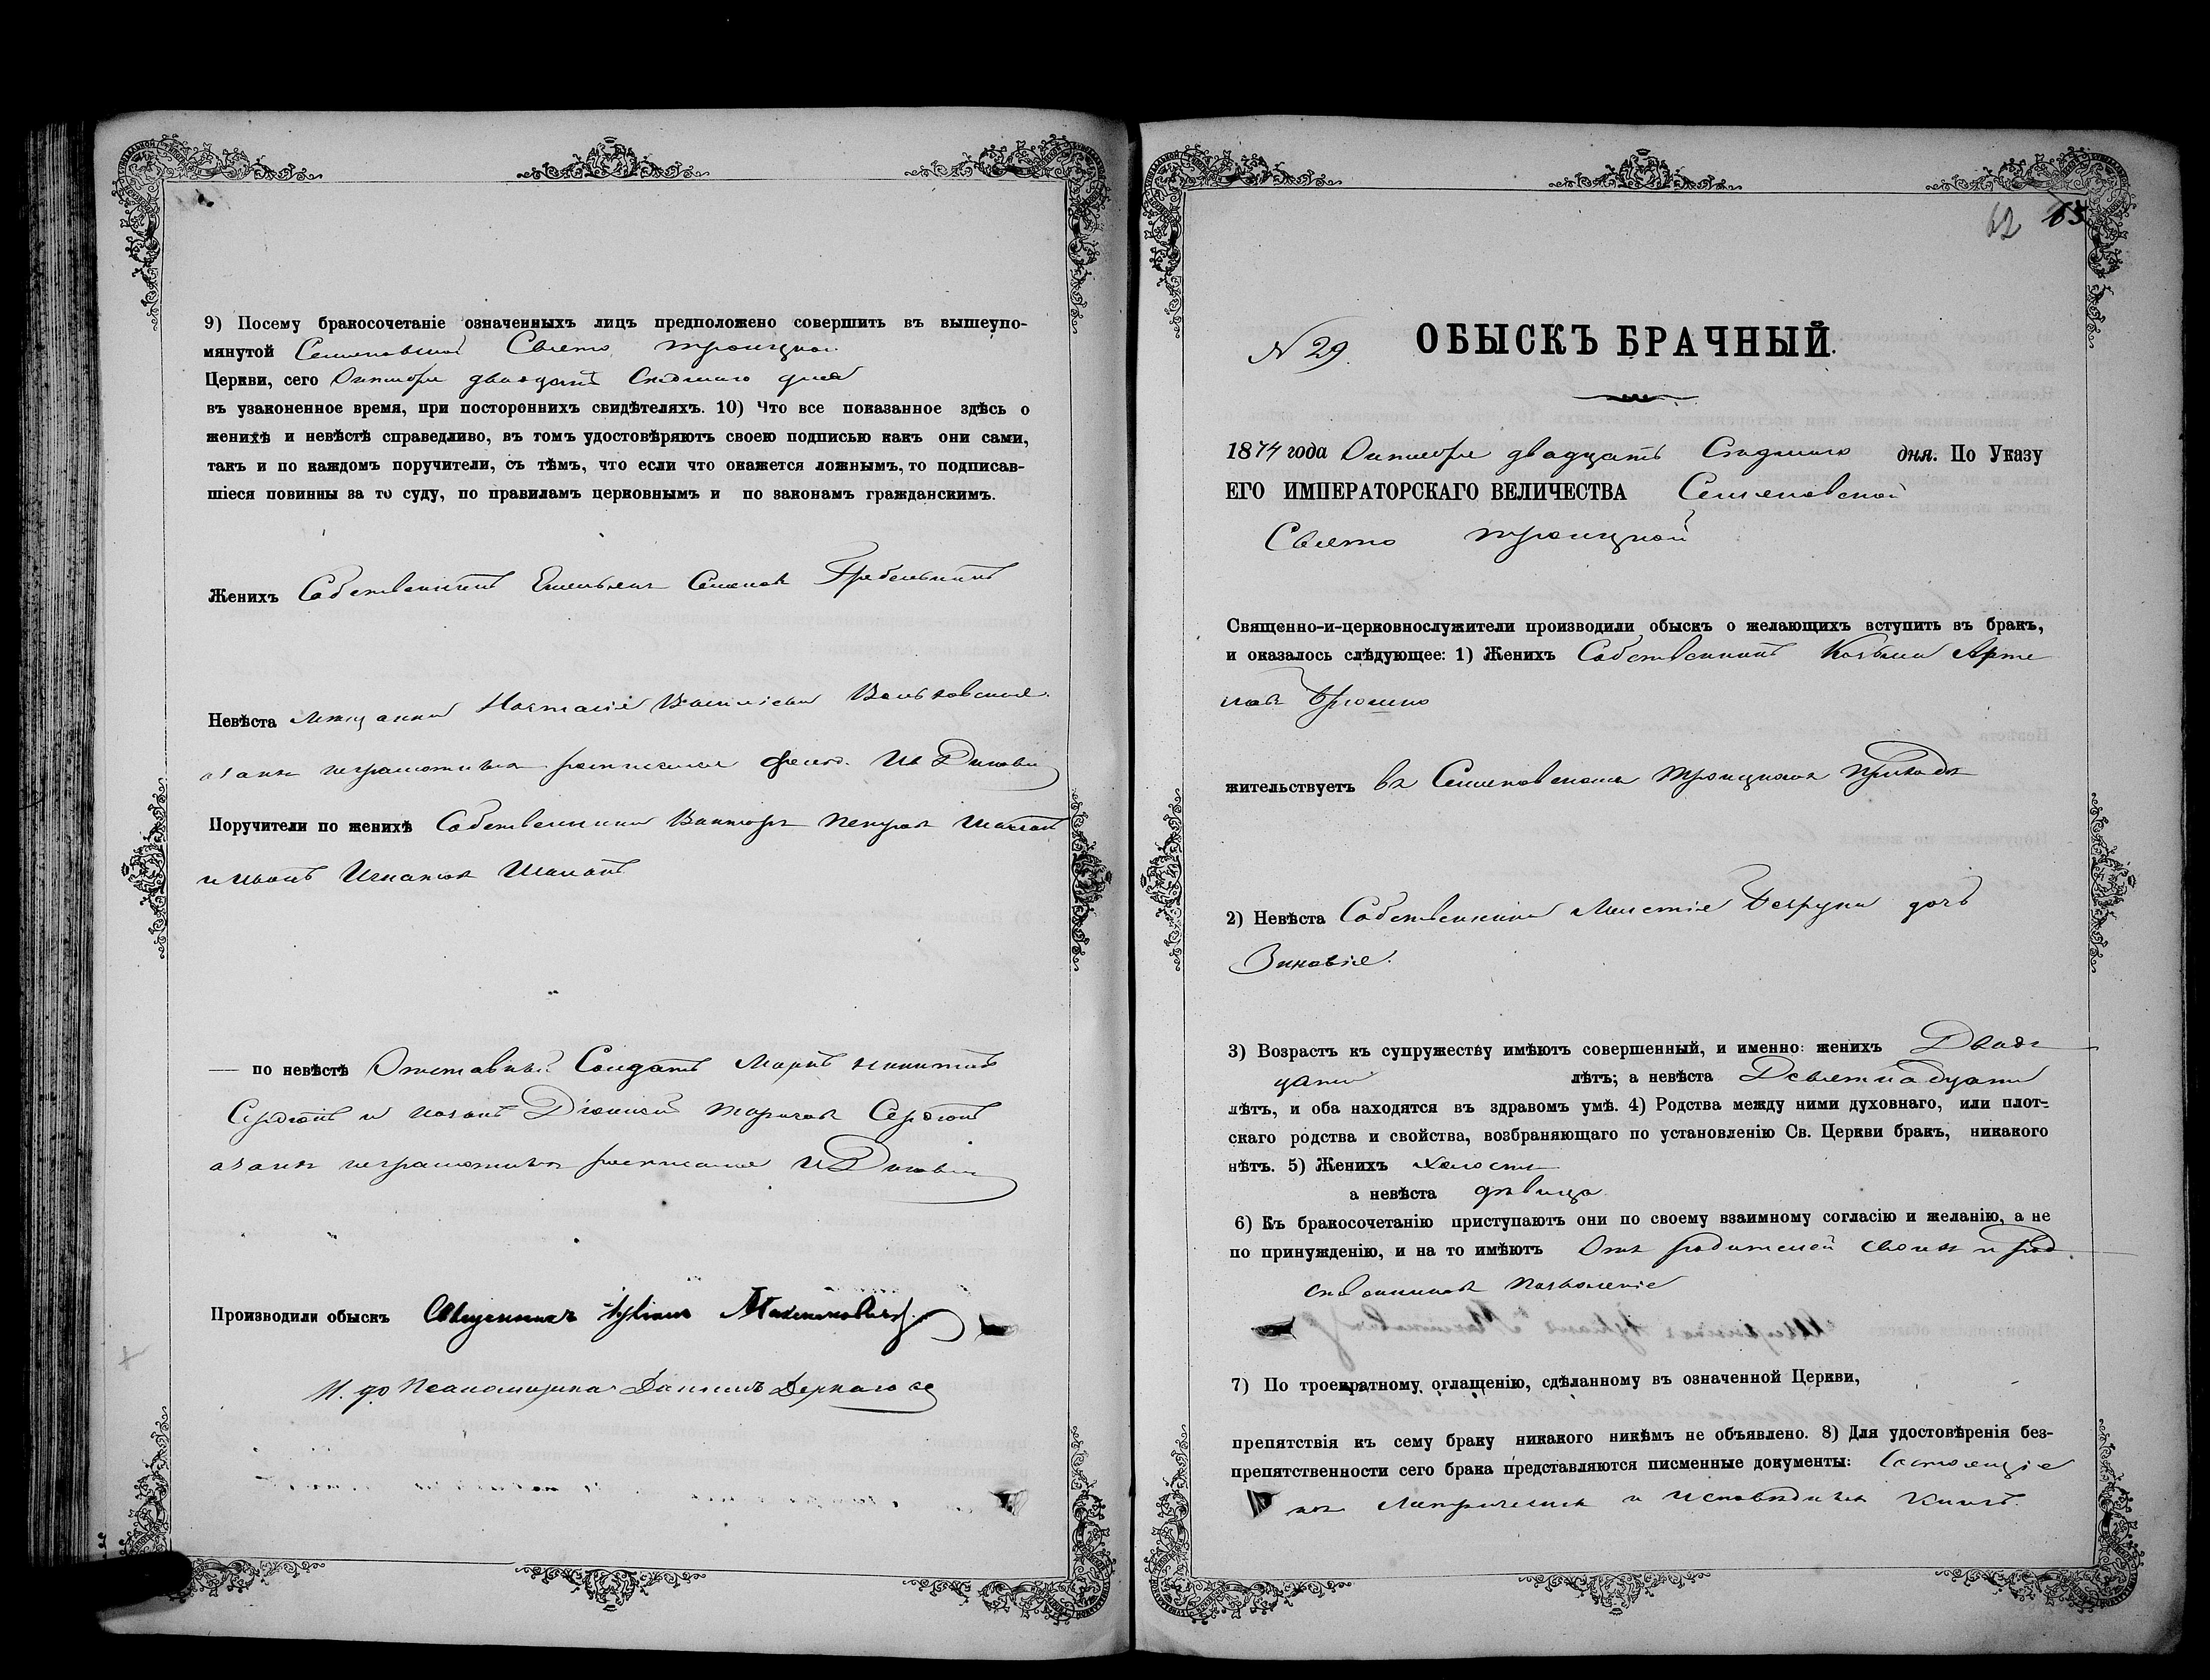 9) Посему бракосочетаніе означенныхъ лицъ предположено совершить въ вышеупо-
мянутой Семеновской Свято Троицкой
Церкви, сего Октября двадцать Седьмаго дня
въ узаконенное время, при постороннихъ свидѣтеляхъ. 10) Что все показанное здѣсь о
женихѣ и невѣстѣ справедливо, въ томъ удостовѣряютъ своею подписью какъ они сами,
такъ и по каждомъ поручители, съ тѣмъ, что если что окажется ложнымъ, то подписав-
шіеся повинны за то суду, по правиламъ церковнымъ и по законамъ гражданскимъ.
Женихъ Собственникъ Емельянъ Семеновъ
Невѣста мещанка Настасія Васильева
неграмотныхъ росписался
Поручители по женихѣ Собственники Викторъ Петровъ
и Иванъ Игнатовъ
— по невѣстѣ Отставный Солдатъ Марко Никитинъ
Сердюкъ и козакъ Діонисій Сердюкъ
неграмотныхъ росписался
Производили обыскъ Священникъ
И. до Псаломщика Даниилъ
62 65
N 29. ОБЫСКЪ БРАЧНЫЙ.
1874 года Октября двадцать Седьмаго дня. По Указу
ЕГО ИМПЕРАТОРСКАГО ВЕЛИЧЕСТВА Семеновской
Свято Троицкой
Священно-и-церковнослужители производили обыскъ о желающихъ вступить въ бракъ,
и оказалось слѣдующее: 1) Женихъ Собственникъ Козьма Арте
мовъ
жительствуетъ въ Семеновскомъ Троицкомъ приходѣ
2) Невѣста Собственника дочь
Зиновія.
3) Возрастъ къ супружеству имѣютъ совершенный, и именно: женихъ Двад
цати лѣтъ; а невѣста Девятнадцати
лѣтъ, и оба находятся въ здравомъ умѣ. 4) Родства между ними духовнаго, или плот-
скаго родства и свойства, возбраняющаго по установленію Св. Церкви бракъ, никакого
нѣтъ. 5) Женихъ холостъ
а невѣста дѣвица
6) Къ бракосочетанію приступаютъ они по своему взаимному согласію и желанію, а не
по принужденію, и на то имѣютъ Отъ родителей своихъ и род
ственниковъ позволеніе
7) По троекратному оглашенію, сдѣланному въ означенной Церкви,
препятствія къ сему браку никакого никѣмъ не объявлено. 8) Для удостовѣренія без-
препятственности сего брака представляются писменные документы:
метрическихъ и исповѣдныхъ книгъ.